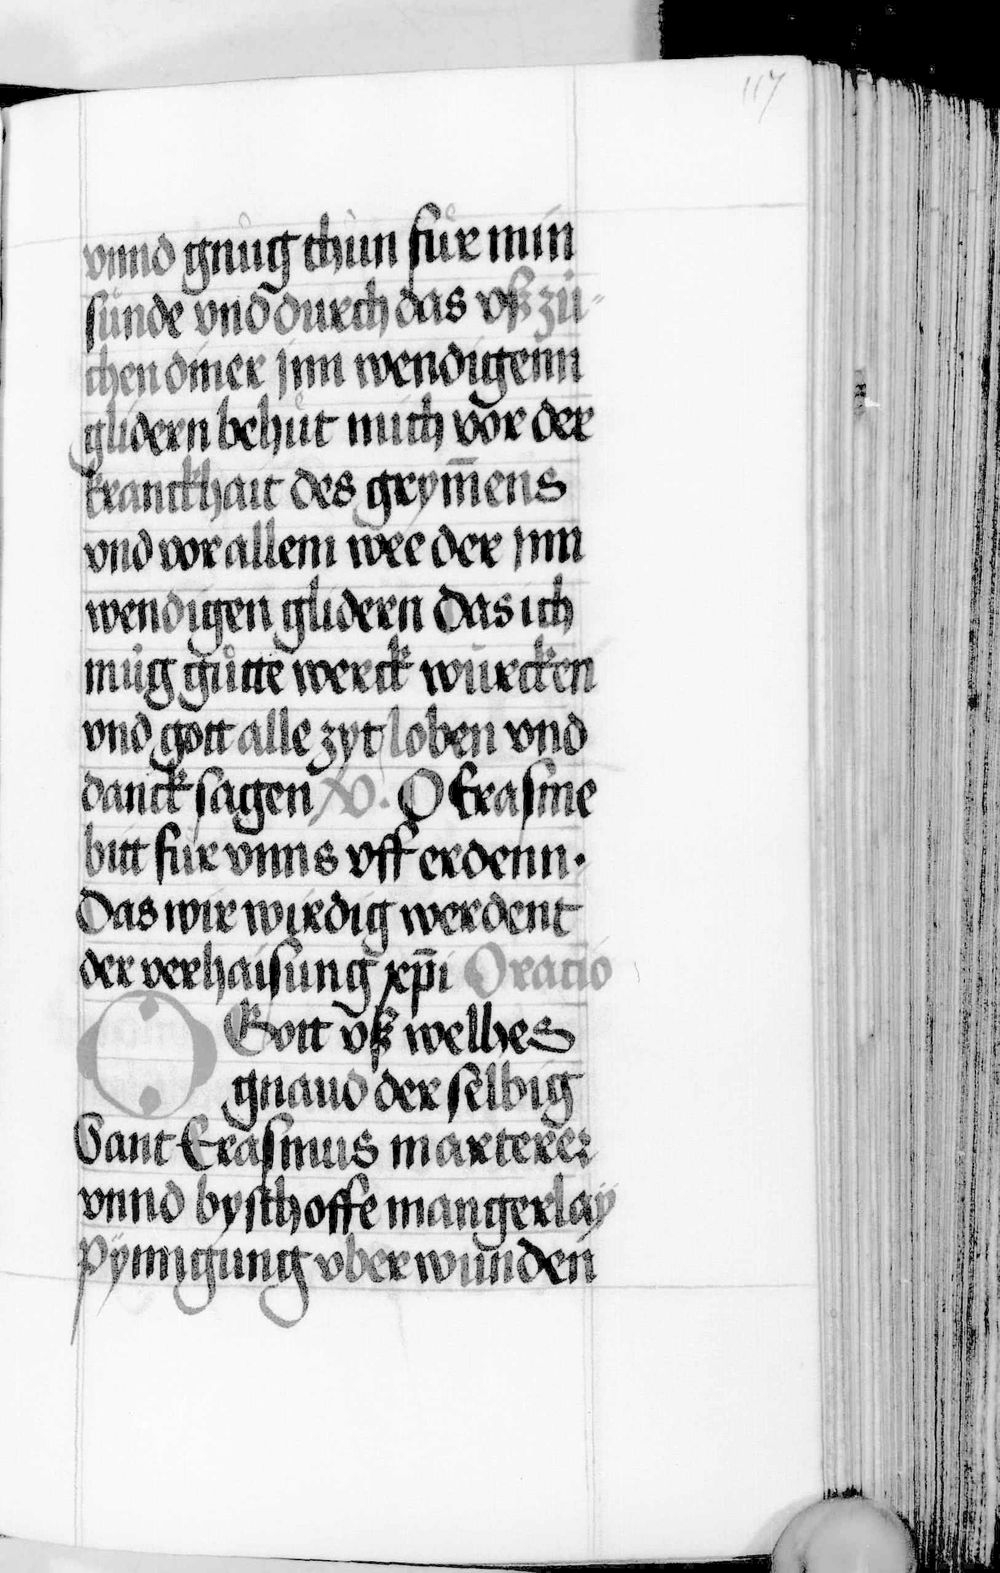 117
vnnd gnůg thůn fůr min
sůnde vnd durch das vß zü-
chen diner jnn wendigenn
glidern behůt mich vor der
kranckhait des grym̄ens
vnd vor allem wee der jnn
wendigen glidern das ich
müg gůtte werck würcken
vnd gott alle zyt loben vnd
danck sagen V. O Erasme
bitt für vnns vff erdenn·
Das wir wirdig werdent
der verhaisung xp̄i Oratio
O Gott vß welhes
gnaud der selbig
Sant Erasmus marterer
vnnd bysthoffe mangerlaÿ
Pÿnnigung vberwunden